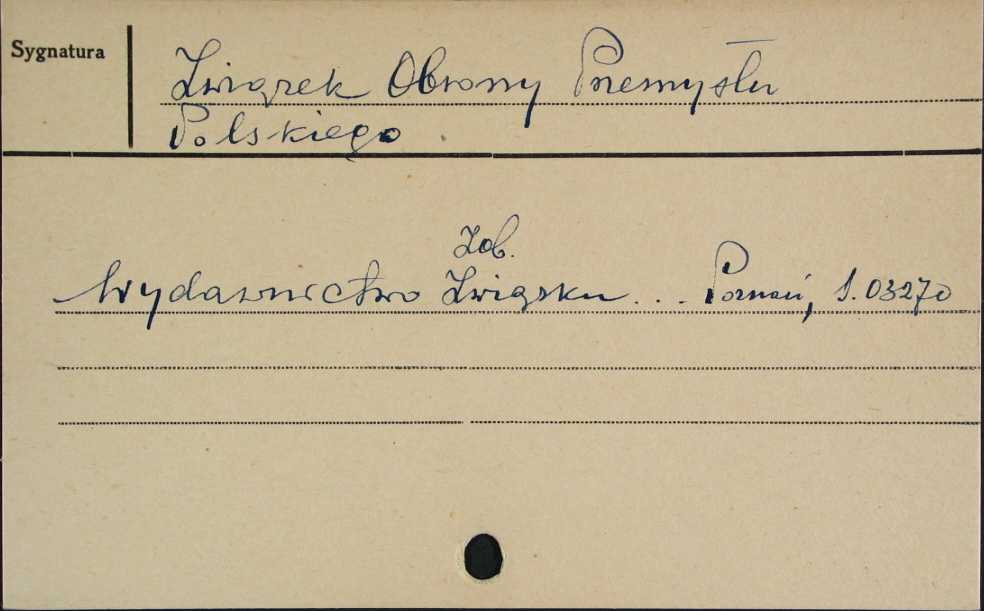 Sygnatura
Związek Obrony Przemysłu
Polskiego
Zob.
Wydawnictwo Związku... Poznań, S.03270